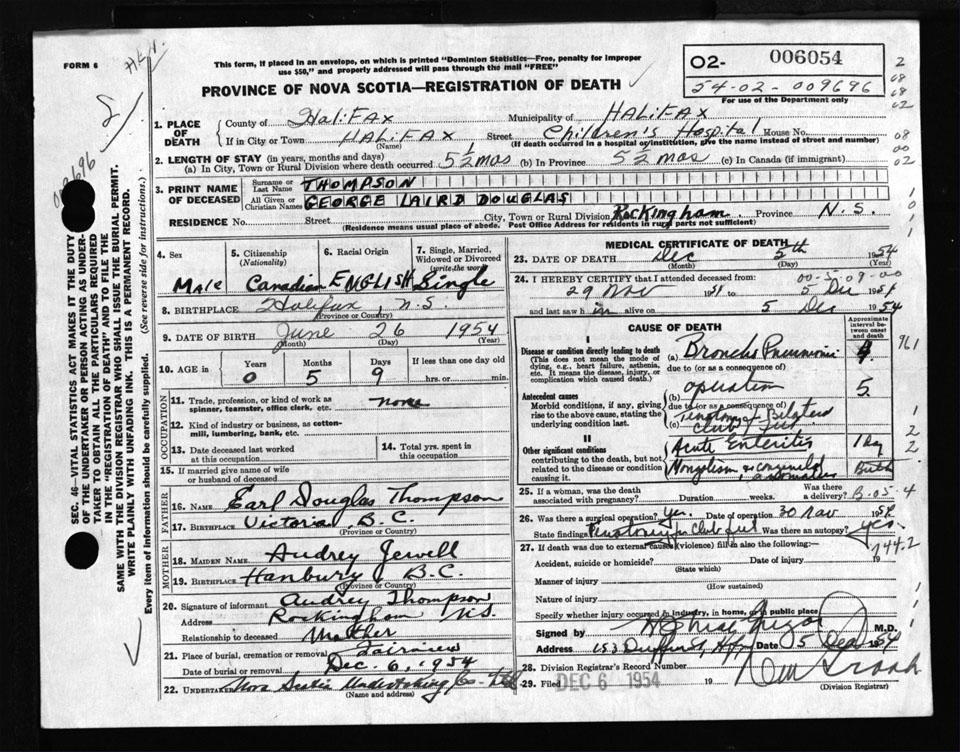 FORM 6
This form, if placed in an envelope, on which is printed "Dominion Statistics—Free, penalty for improper
use $50," and properly addressed will pass through the mail "FREE"
O2- 006054
54-02-009696
For use of the Department only
PROVINCE OF NOVA SCOTIA—REGISTRATION OF DEATH
1. PLACE OF DEATH
County of HaliFAX Municipality of HALiFAX
If in City or Town HALiFAX (Name) Street Children's Hospital House No.
(If death occurred in a hospital or institution, give the name instead of street and number)
2. LENGTH OF STAY (in years, months and days)
(a) In City, Town or Rural Division where death occurred 5½ mos (b) In Province 5½ mos (c) In Canada (if immigrant)
3. PRINT NAME OF DECEASED
Surname or Last Name THOMPSON
All Given or Christian Names GEORGE LAIRD DOUGLAS
RESIDENCE No. Street City, Town or Rural Division Rockingham Province N.S.
(Residence means usual place of abode. Post Office Address for residents in rural parts not sufficient)
4. Sex Male
5. Citizenship (Nationality) Canadian
6. Racial Origin ENGLISH
7. Single, Married, Widowed or Divorced (write the word) Single
8. BIRTHPLACE Halifax, N.S.
(Province or Country)
9. DATE OF BIRTH June 26 1954
(Month) (Day) (Year)
10. AGE in Years Months Days If less than one day
0 5 9 hrs. or min.
OCCUPATION
11. Trade, profession, or kind of work as
spinner, teamster, office clerk, etc. none
12. Kind of industry or business, as cotton-
mill, lumbering, bank, etc.
13. Date deceased last worked
at this occupation
14. Total yrs. spent in
this occupation
15. If married give name of wife
or husband of deceased
FATHER
16. NAME Earl Douglas Thompson
17. BIRTHPLACE Victoria, B.C.
(Province or Country)
MOTHER
18. MAIDEN NAME Audrey Jewell
19. BIRTHPLACE Hanbury B.C.
(Province or Country)
20. Signature of informant Audrey Thompson
Address Rockingham N.S.
Relationship to deceased Mother
21. Place of burial, cremation or removal Fairview
Date of burial or removal Dec. 6, 1954
22. UNDERTAKER Nova Scotia Undertaking Co. Ltd
(Name and address)
MEDICAL CERTIFICATE OF DEATH
23. DATE OF DEATH Dec 5th 1954
(Month) (Day) (Year)
24. I HEREBY CERTIFY that I attended deceased from:
00-5-09-00
29 Nov 19 to 5 Dec 19
and last saw h alive on 5 Dec 1954
CAUSE OF DEATH
Approximate interval between onset and death
I
Disease or condition directly leading to death
(This does not mean the mode of dying, e.g., heart failure, asthenia, etc. It means the disease, injury, or complication which caused death.)
(a) Broncho Pneumonia
due to (or as a consequence of)
Antecedent causes
Morbid conditions, if any, giving rise to the above cause, stating the underlying condition last.
(b) operation 5
due to (or as a consequence of)
(c) Tenotomy Bilateral
Club Feet
II
Other significant conditions
contributing to the death, but not related to the disease or condition causing it.
Acute Enteritis 1 Day
Mongolism & congenital Birth
761
25. If a woman, was the death
associated with pregnancy? Duration weeks. Was there a delivery? B-05-4
26. Was there a surgical operation? Yes. Date of operation 30 Nov 1954
State findings Tenotomy in Club feet Was there an autopsy? yes.
744.2
27. If death was due to external causes (violence) fill in also the following:—
Accident, suicide or homicide? Date of injury 19
(State which)
Manner of injury
(How sustained)
Nature of injury
Specify whether injury occurred in industry, in home, or in public place
Signed by M.D.
Address 153 Date 5 Dec 1954
28. Division Registrar's Record Number
29. Filed DEC 6 1954 19
(Division Registrar)
SEC. 46—VITAL STATISTICS ACT MAKES IT THE DUTY
OF THE UNDERTAKER OR PERSON ACTING AS UNDER-
TAKER TO OBTAIN ALL THE PARTICULARS REQUIRED
IN THE "REGISTRATION OF DEATH" AND TO FILE THE
SAME WITH THE DIVISION REGISTRAR WHO SHALL ISSUE THE BURIAL PERMIT.
WRITE PLAINLY WITH UNFADING INK. THIS IS A PERMANENT RECORD.
Every item of information should be carefully supplied. (See reverse side for instructions.)